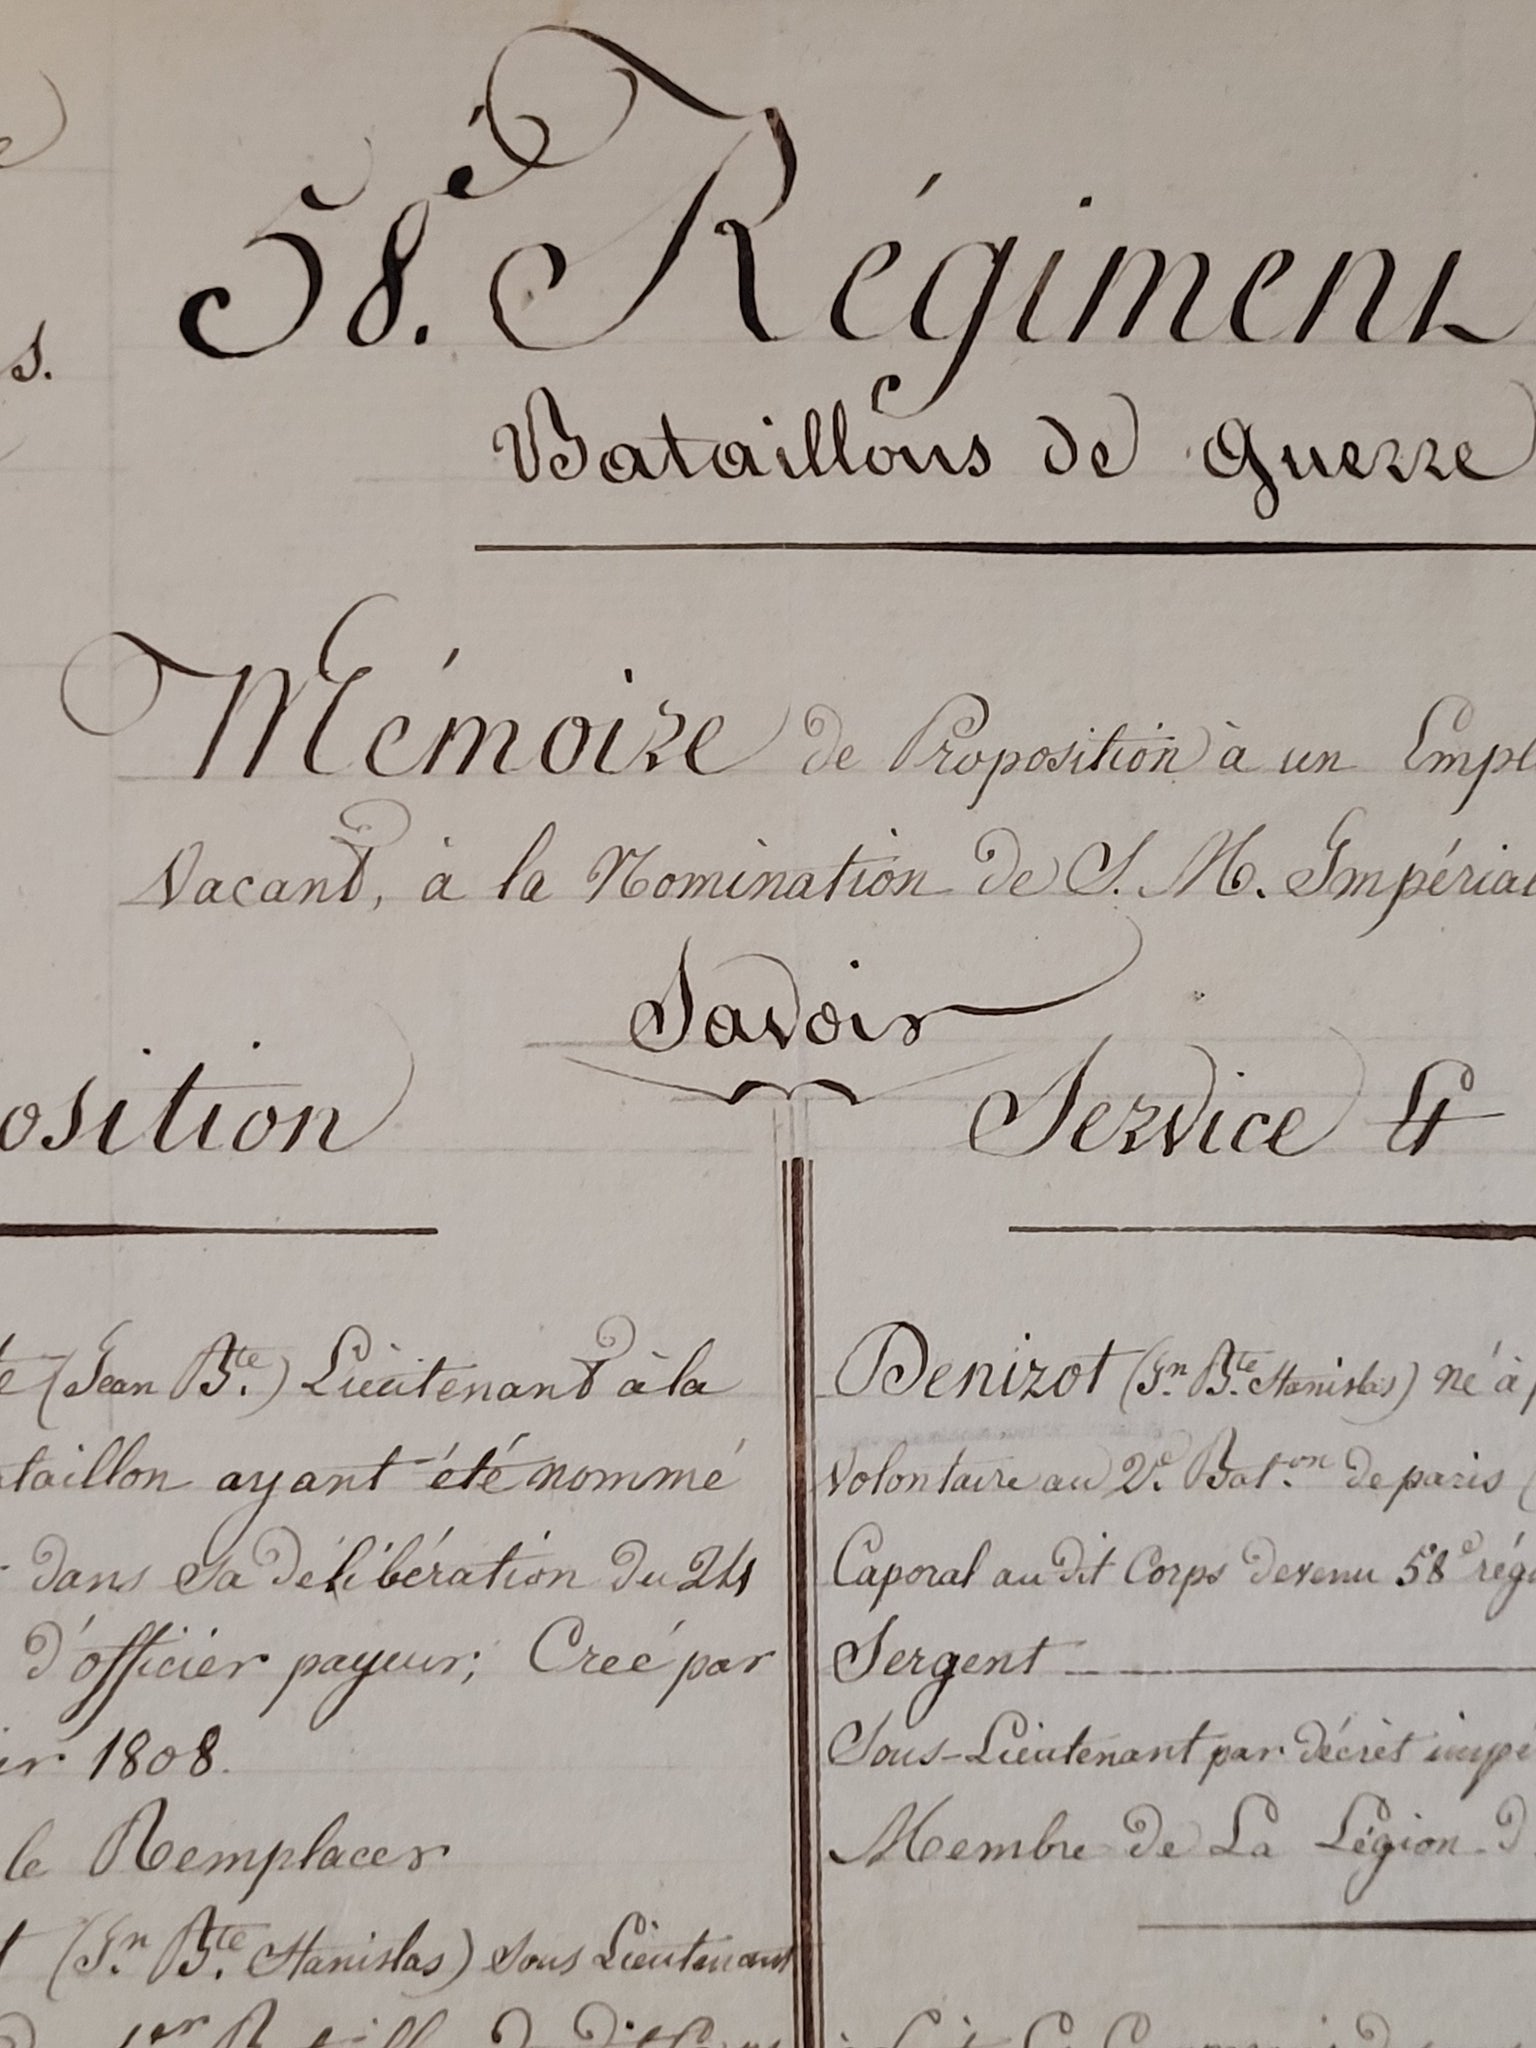 58.e Régiment
Bataillons de Guerre
Mémoire de Proposition à un Empl
Vacant, à la Nomination de S. M. Impérial
Savoir
osition
Service &
te (Jean Bte.) Lieutenant à la
taillon ayant été nommé
dans sa délibération du 24
d'officier payeur; Créé par
er 1808.
le Remplacer
t (Jn. Bte. Stanislas) Sous Lieutenant
Denizot (Jn. Bte. Stanislas) né à p
Volontaire au 2.e Bat.on de paris (
Caporal au dit Corps devenu 58e rég
Sergent
Sous-Lieutenant par décret impé
Membre de La Légion d